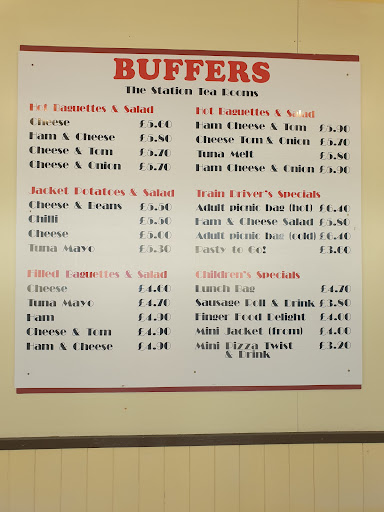 BUFFERS
The Station Tea Rooms
Hot Baguettes & Salad
Cheese £5.60
Ham & Cheese £5.80
Cheese & Tom £5.70
Cheese & Onion £5.70
Jacket Potatoes & Salad
Cheese & Beans £5.50
Chilli £5.50
Cheese £5.00
Tuna Mayo £5.30
Filled Baguettes & Salad
Cheese £4.60
Tuna Mayo £4.70
Ham £4.90
Cheese & Tom £4.90
Ham & Cheese £4.90
Hot Baguettes & Salad
Ham Cheese & Tom £5.90
Cheese Tom & Onion £5.70
Tuna Melt £5.80
Ham Cheese & Onion £5.90
Train Driver's Specials
Adult picnic bag (hot) £6.40
Ham & Cheese Salad £5.80
Adult picnic bag (cold) £6.40
Pasty to Go! £3.60
Children's Specials
Lunch Bag £4.70
Sausage Roll & Drink £3.80
Finger Food Delight £4.60
Mini Jacket (from) £4.00
Mini Pizza Twist £3.20
& Drink